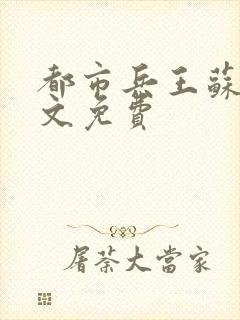 都市兵王蘇
文免費
屠荼大當家